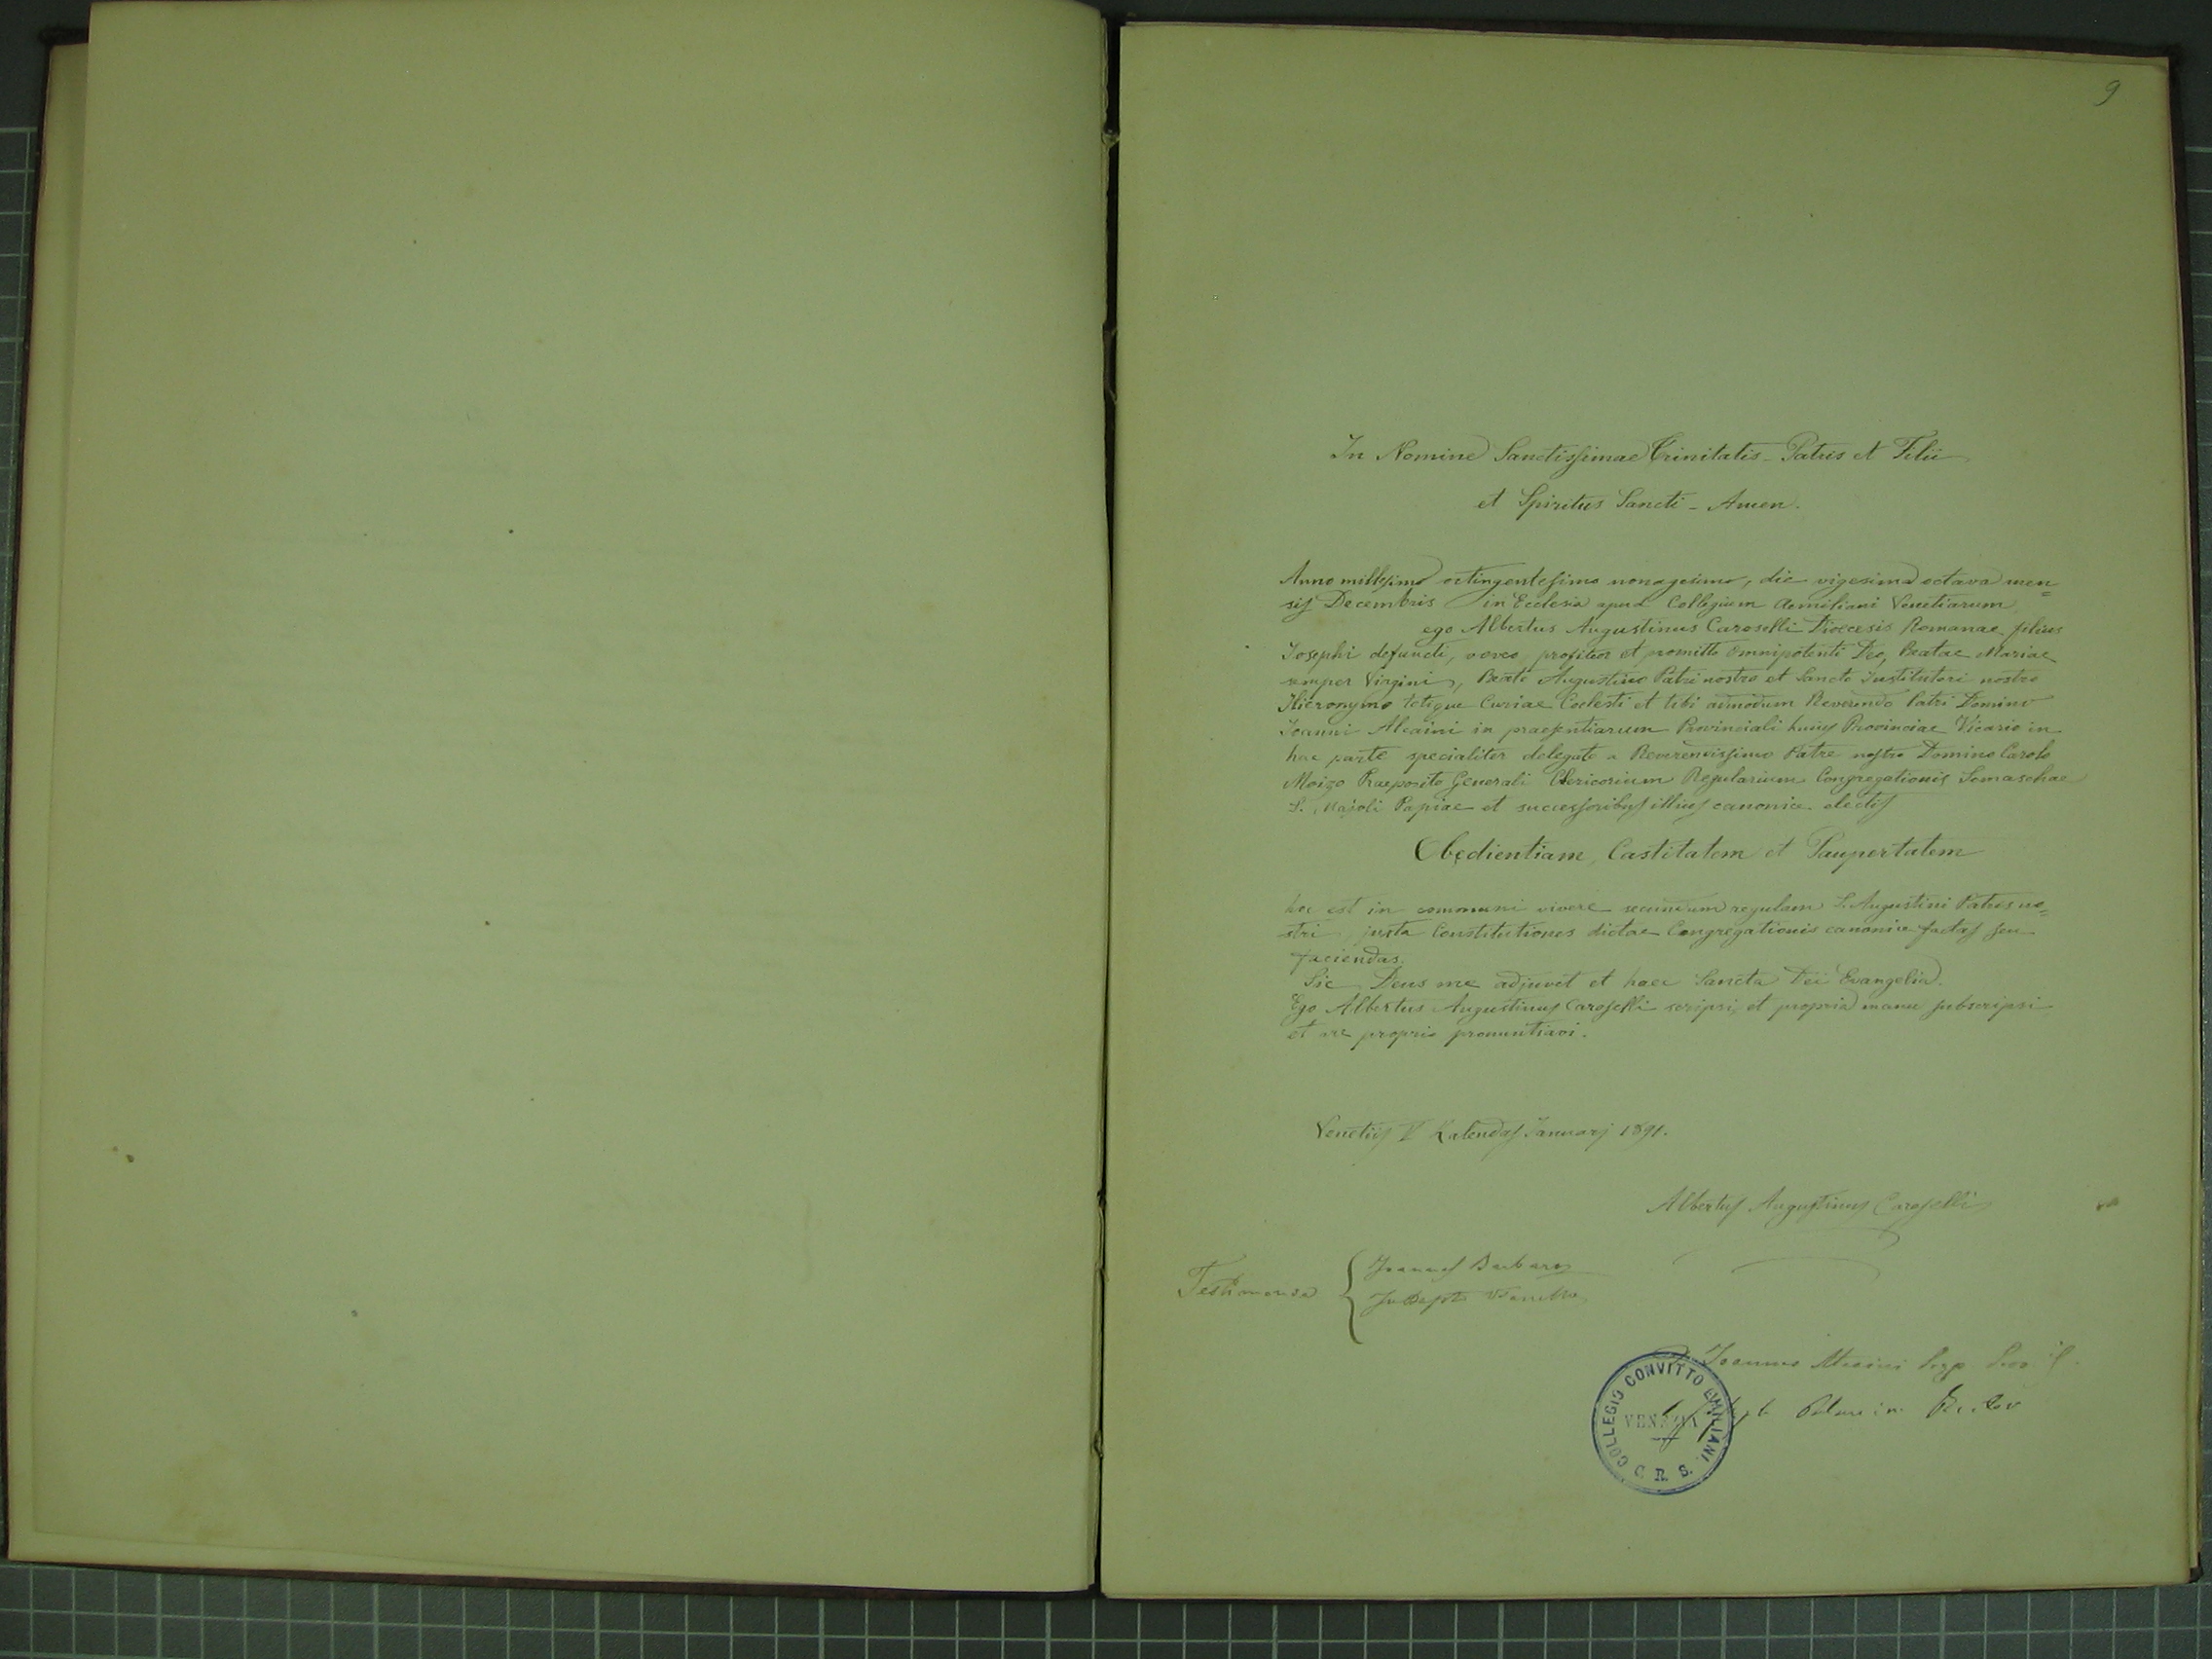 9
In Nomine Sanctissimae Trinitatis - Patris et Filii
et Spiritus Sancti - Amen.
Anno millesimo octingentesimo nonagesimo, die vigesima octava men=
sis Decembris in Ecclesia apud Collegium Aemiliani Venetiarum
ego Albertus Augustinus Caroselli Dioecesis Romanae filius
Josephi defuncti, voveo, profiteor et promitto Omnipotenti Deo, Beatae Mariae
semper Virgini, Beato Augustino Patri nostro et Sancto Institutori nostro
Hieronymo totique Curiae Coelesti et tibi admodum Reverendo Patri Domino
Joanni Alcaini in praesentiarum Provinciali huius Provinciae Vicario in
hac parte specialiter delegato a Reverendissimo Patre nostro Domino Carolo
Moizo Praeposito Generali Clericorium Regularium Congregationis Somaschae
S. Majoli Papiae et successoribus illius canonice electis
Obedientiam, Castitatem et Paupertatem
hoc est in communi vivere secundum regulam S. Augustini Patris no=
stri juxta Constitutiones dictae Congregationis canonice factas seu
faciendas.
Sic Deus me adjuvet et haec Sancta Dei Evangelia.
Ego Albertus Augustinus Caroselli scripsi, et propria manu subscripsi
et ore proprio pronuntiavi.
Venetiis V Kalendas Januarj 1891.
Albertus Augustinus Caroselli
Testimonia
Joannes Barbaro
Joannes Alcaini
Rector
COLLEGIO CONVITTO EMILIANI
VENEZIA
C. R. S.